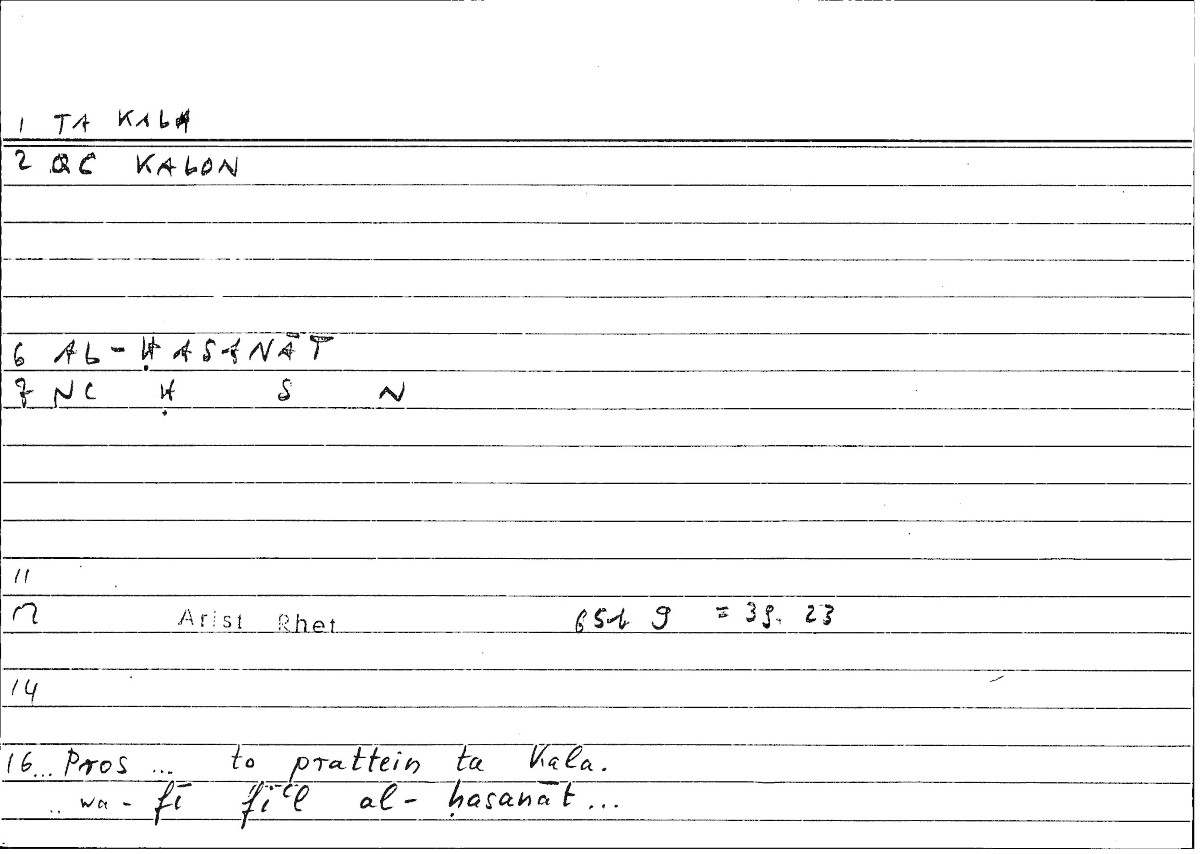 1 TA KALA
2 QC KALON
6 AL-ḤASANĀT
7 NC Ḥ S N
11
Arist Rhet = 39. 23
14
16... Pros ... to prattein ta Kala.
.. wa- fī fiʿl al- ḥasanāt...